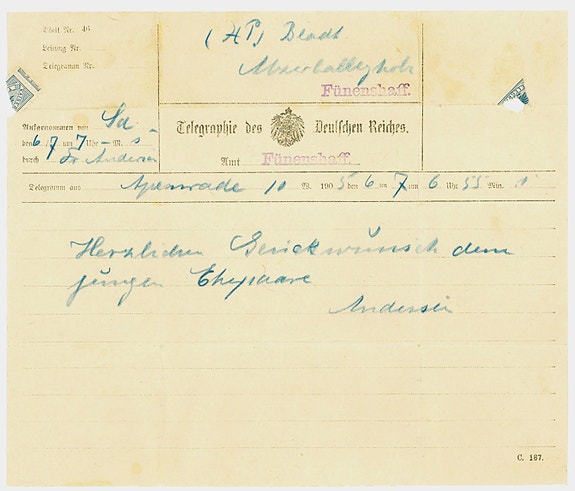 Blatt Nr. 46
Leitung Nr.
Telegramm Nr.
(HP) Bladt
Fünenshaff.
Aufgenommen von Sd
den 6/7 um 7 Uhr - M.
durch Fr. Andersen
Telegraphie des Deutschen Reiches.
Amt Fünenshaff.
Telegramm aus Apenrade 10 W. 1905 den 6/7 um 6 Uhr 55 Min.
Herzlichen Glückwunsch dem
jungen Ehepaare
Andersen
C. 187.